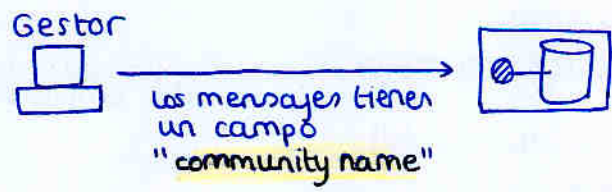 Gestor
los mensajes tienes
un campo
"community name"